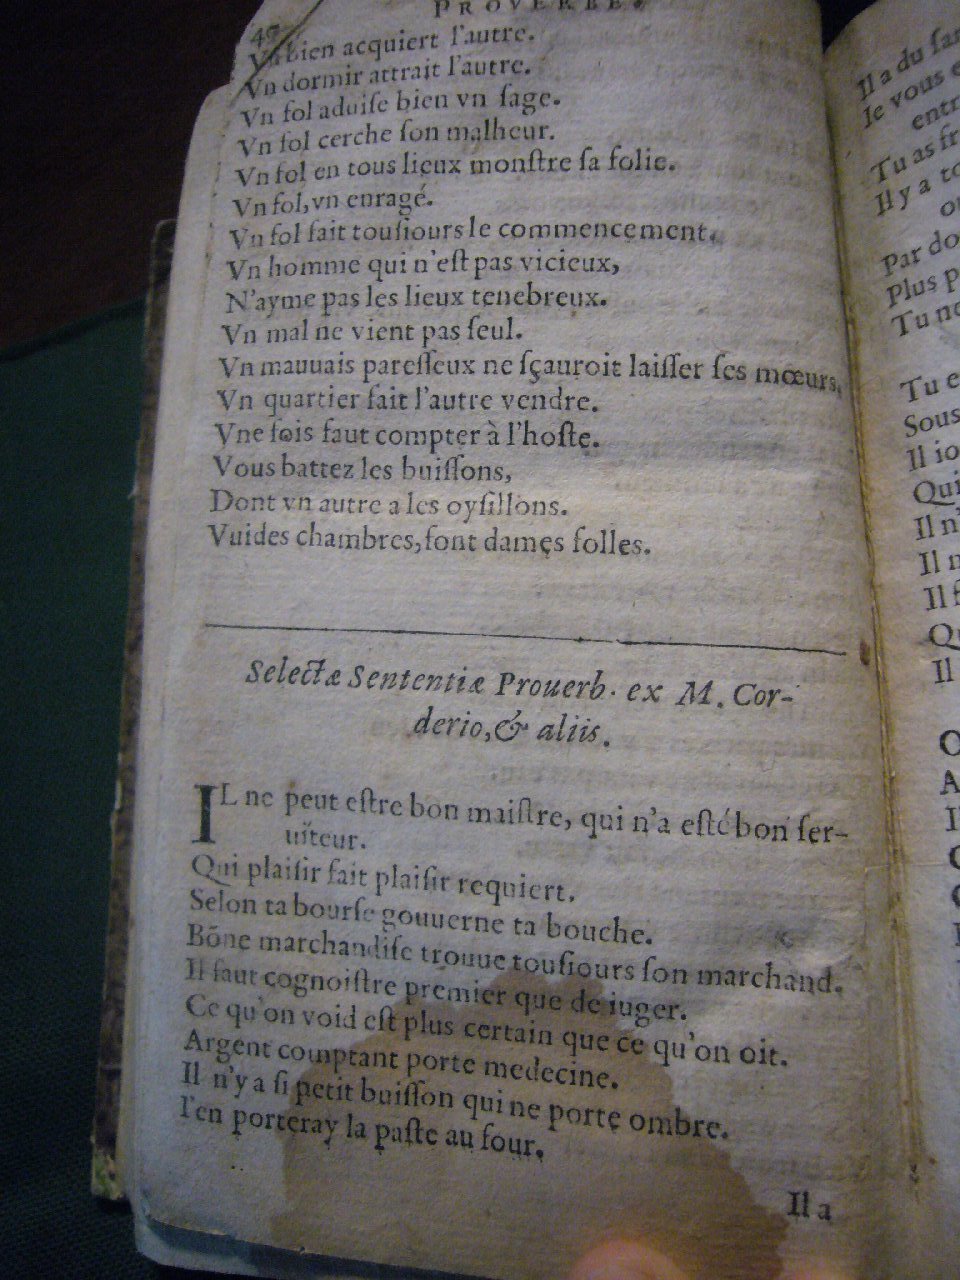 PROVERBE
Vn bien acquiert l'autre.
Vn dormir attrait l'autre.
Vn fol aduiſe bien vn ſage.
Vn fol cerche ſon malheur.
Vn fol en tous lieux monſtre ſa folie.
Vn fol, vn enragé.
Vn fol fait touſiours le commencement.
Vn homme qui n'eſt pas vicieux,
N'ayme pas les lieux tenebreux.
Vn mal ne vient pas ſeul.
Vn mauuais pareſſeux ne ſçauroit laiſſer ſes mœurs.
Vn quartier fait l'autre vendre.
Vne fois faut compter à l'hoſte.
Vous battez les buiſſons,
Dont vn autre a les oyſillons.
Vuides chambres, font dames folles.
Selectæ Sententiæ Prouerb. ex M. Cor-
derio, & aliis.
IL ne peut eſtre bon maiſtre, qui n'a eſté bon ſer-
uiteur.
Qui plaiſir fait plaiſir requiert.
Selon ta bourſe gouuerne ta bouche.
Bõne marchandiſe trouue touſiours ſon marchand.
Il faut cognoiſtre premier que de iuger.
Ce qu'on void eſt plus certain que ce qu'on oit.
Argent comptant porte medecine.
Il n'y a ſi petit buiſſon qui ne porte ombre.
I'en porteray la paſte au four.
Il a
Il a du
Ie vous
entr
Tu as fr
Il y a
Par do
Plus p
Tu ne
Tu e
Sous
Il io
Qui
Il n'
Il
Il
Il